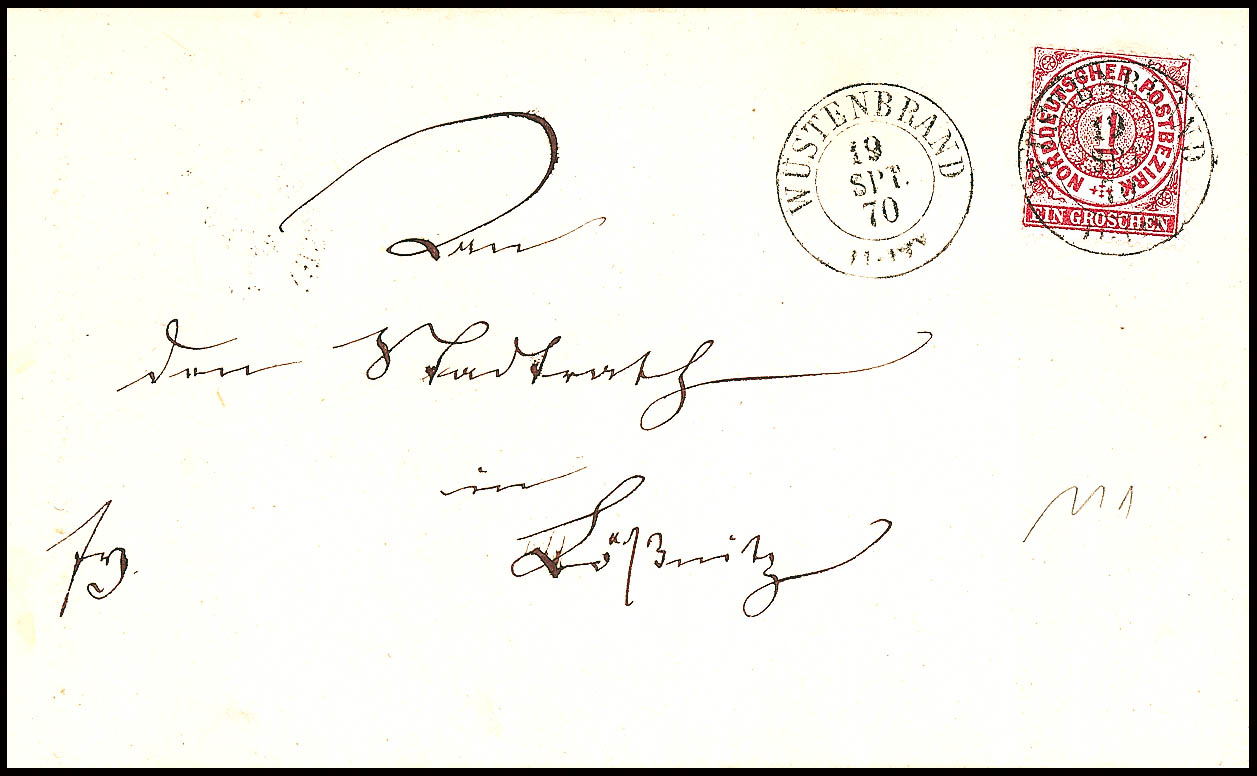 An
den Stadtrath
in
Lößnitz
fr.
WÜSTENBRAND
19
SPT.
70
NORDDEUTSCHER POSTBEZIRK
1
EIN GROSCHEN